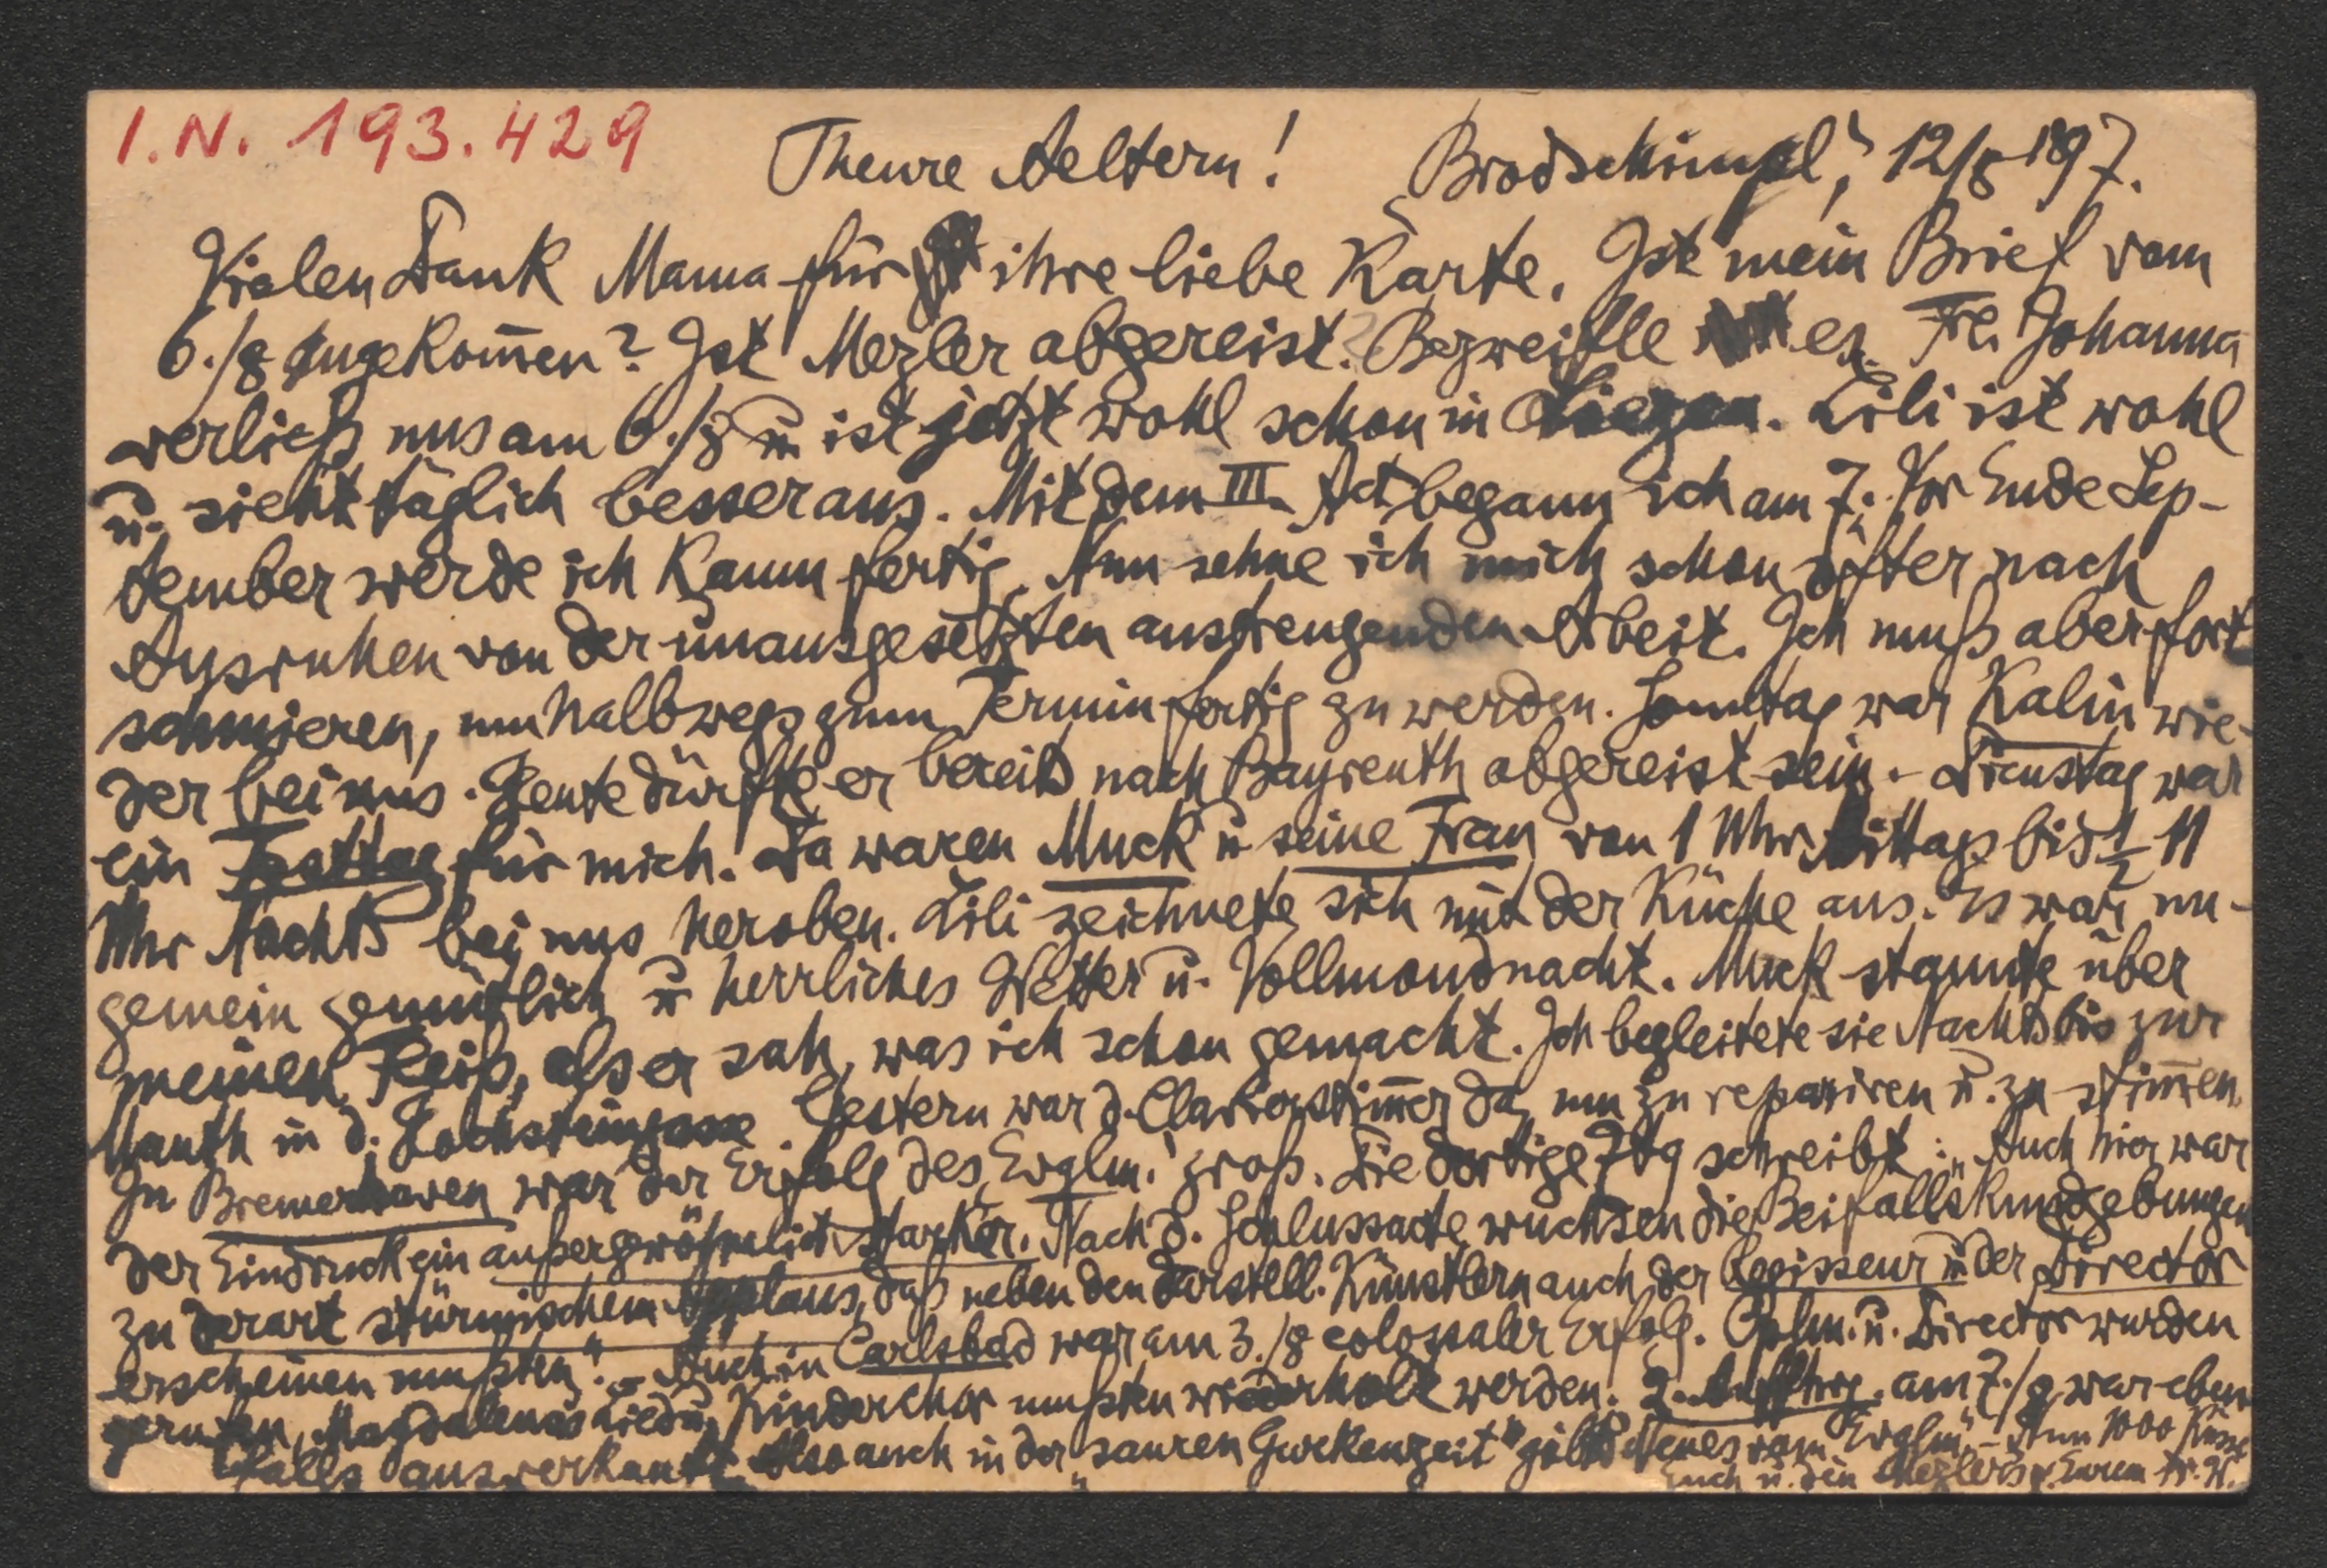 I.N. 193.429
Theure Aeltern! "Brodschimpel", 12/8 1897.
Vielen Dank Mama für ihre liebe Karte. Ist mein Brief vom
6./8 angekom̅en? Ist Mezler abgereist? Bezweifle es. Frl. Johanna
verließ uns am 6./8 u. ist jetzt wohl schon in Liezen. Lili ist wohl
u. sieht täglich besser aus. Mit dem III. Act begann ich am 7. Vor Ende Sep-
tember werde ich kaum fertig. Nun sehne ich mich schon öfter nach
Ausruhen von der unausgesetzten anstrengenden Arbeit. Ich muß aber fort
schmieren, um halbwegs zum Termin fertig zu werden. Sonntag war Kalin wie-
der bei uns. Heute dürfte er bereits nach Bayreuth abgereist sein. - Dienstag war
ein Festtag für mich. Da waren Muck u seine Frau von 1 Uhr Mittags bis ½ 11
Uhr Nachts bei uns heroben. Lili zeichnete sich mit der Küche aus. Es war un-
gemein gemütlich u herrliches Wetter u. Vollmondnacht. Muck staunte über
meinen Fleiß, als er sah, was ich schon gemacht. Ich begleitete sie Nachts bis zur
Mauth in d. Hochsteingasse. Gestern war d. Clavierstim̅er da, um zu repariren u. zu stim̅en.
In Bremerhaven war der Erfolg des "Evglm." groß. Die dortige Ztg schreibt: "Auch hier war
der Eindruck ein außergewöhnlich starker. Nach d. Schlussacte wuchsen die Beifallskundgebungen
zu derart stürmischem Applaus, daß neben den darstell. Künstlern auch der Regisseur u der Director
erscheinen mußten". - Auch in Carlsbad war am 3./8 colossaler Erfolg. u. Director wurden
gerufen, Magdalenas Lied u. Kinderchor mußten wiederholt werden. 2. Aufführg. am 7./8 war eben
falls ausverkauft. Also auch in der "sauren Gurkenzeit" gibts Neues vom "Evglm". - Nun 1000 Küsse
Euch u. den Mezlers v. Eurem